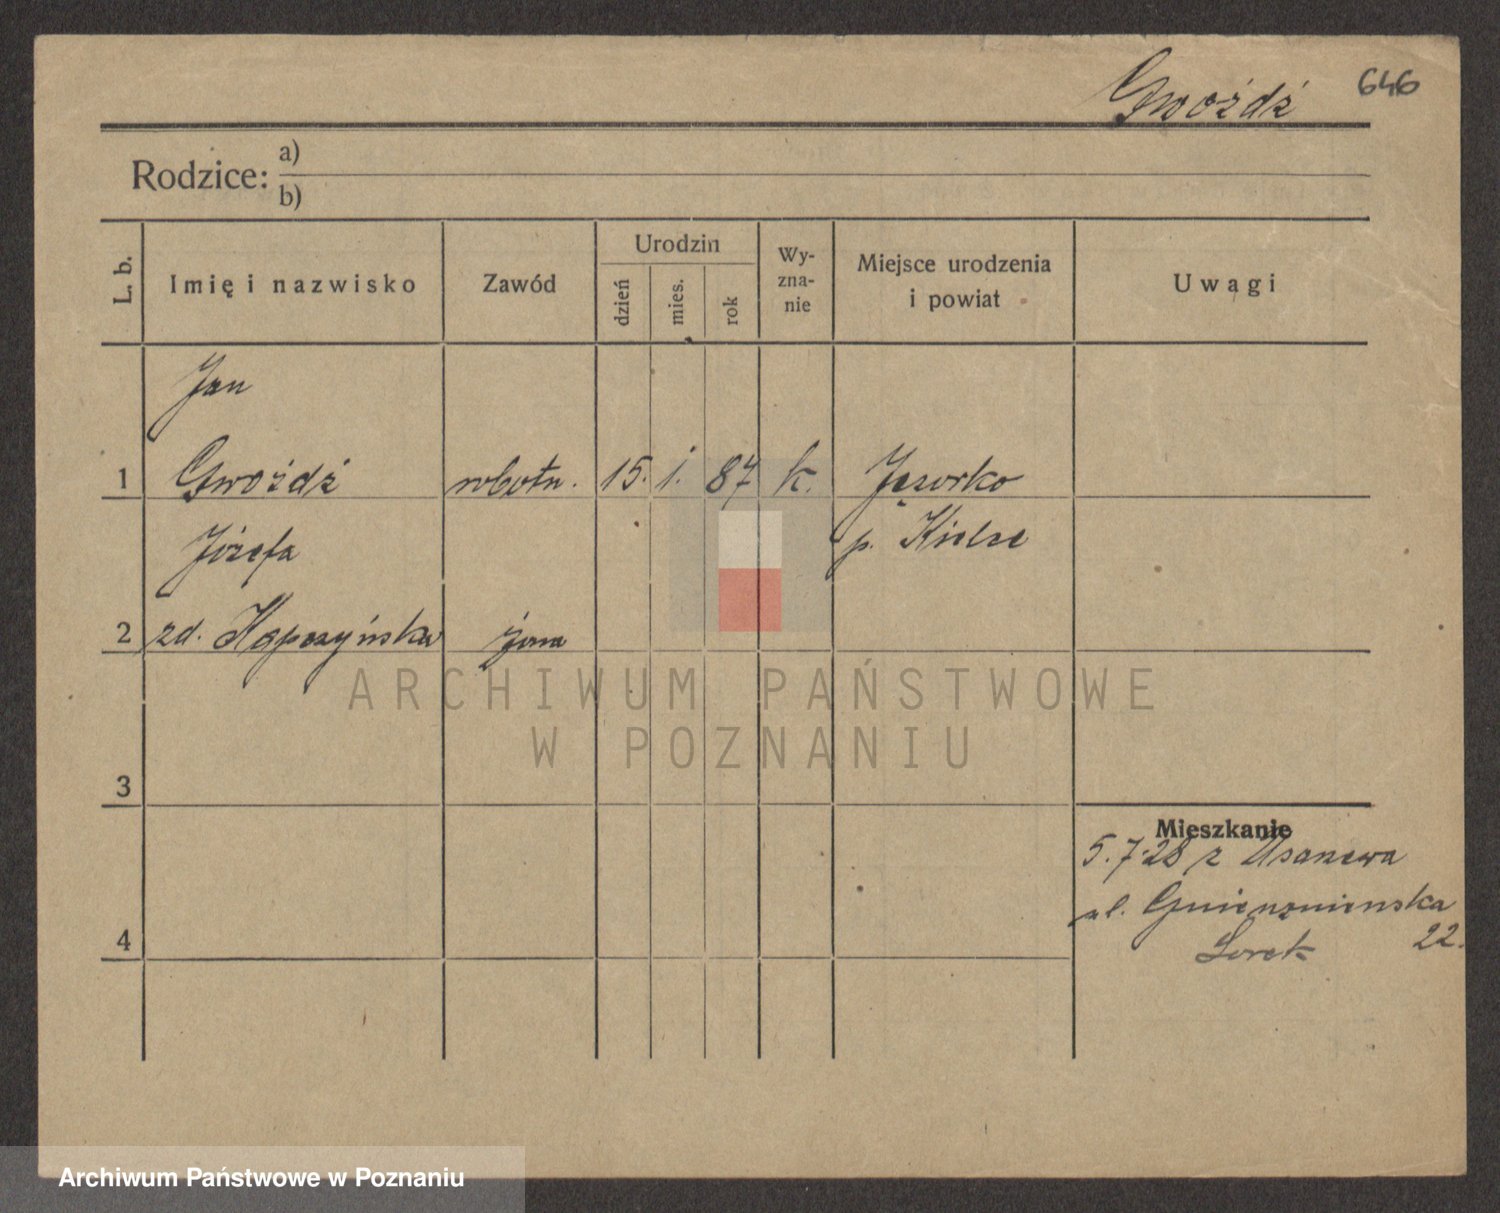 Gwoździ 646
Rodzice: a)
b)
L. b. Imię i nazwisko Zawód Urodzin dzień mies. rok Wy-zna-nie Miejsce urodzenia i powiat Uwagi
Jan
1 Gwoździ robotn. 15. 1. 87 k. Jeziorko
Józefa p. Kielce
2 zd. żona
ARCHIWUM PAŃSTWOWE
W POZNANIU
3
Mieszkanie
5.7.28 z
ul. Gnieznieńska
4 22.
Archiwum Państwowe w Poznaniu